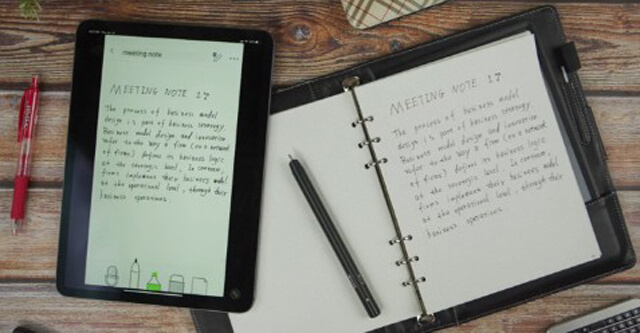 meeting note
MEETING NOTE 17
The process of business model
design is part of business strategy.
Business model design and innovation
refer to the way a firm (or a network
of firms) defines its business logic
at the strategic level. In contrast,
firms implement their business model
at the operational level, through their
business operations.
MEETING NOTE 17
The process of business model
design is part of business strategy.
Business model design and innovation
refer to the way a firm (or a network
of firms) defines its business logic
at the strategic level. In contrast,
firms implement their business model
at the operational level, through their
business operations.